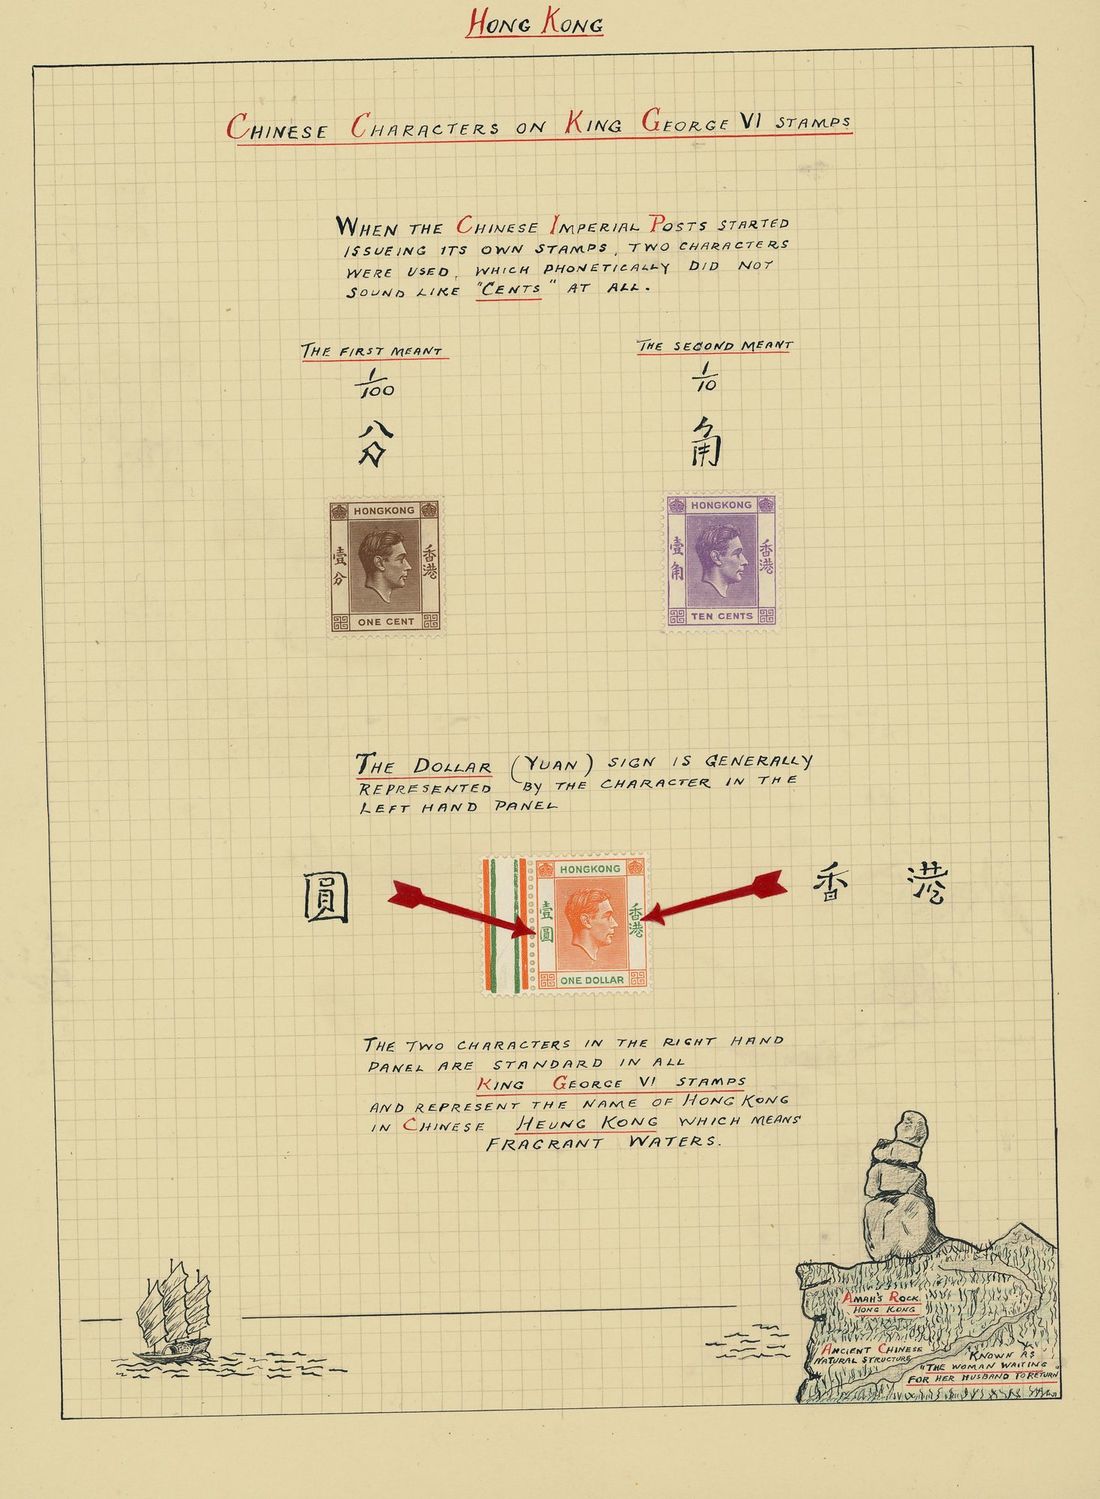 HONG KONG
CHINESE CHARACTERS ON KING GEORGE VI STAMPS
WHEN THE CHINESE IMPERIAL POSTS STARTED
ISSUEING ITS OWN STAMPS, TWO CHARACTERS
WERE USED, WHICH PHONETICALLY DID NOT
SOUND LIKE "CENTS" AT ALL.
THE FIRST MEANT
1/100
分
HONGKONG
壹分
香港
ONE CENT
THE SECOND MEANT
1/10
角
HONGKONG
壹角
香港
TEN CENTS
THE DOLLAR (YUAN) SIGN IS GENERALLY
REPRESENTED BY THE CHARACTER IN THE
LEFT HAND PANEL
圓
HONGKONG
壹圓
香港
ONE DOLLAR
香 港
THE TWO CHARACTERS IN THE RIGHT HAND
PANEL ARE STANDARD IN ALL
KING GEORGE VI STAMPS
AND REPRESENT THE NAME OF HONG KONG
IN CHINESE HEUNG KONG WHICH MEANS
FRAGRANT WATERS.
AMAH'S ROCK
HONG KONG
ANCIENT CHINESE
NATURAL STRUCTURE
KNOWN AS
"THE WOMAN WAITING
FOR HER HUSBAND TO RETURN